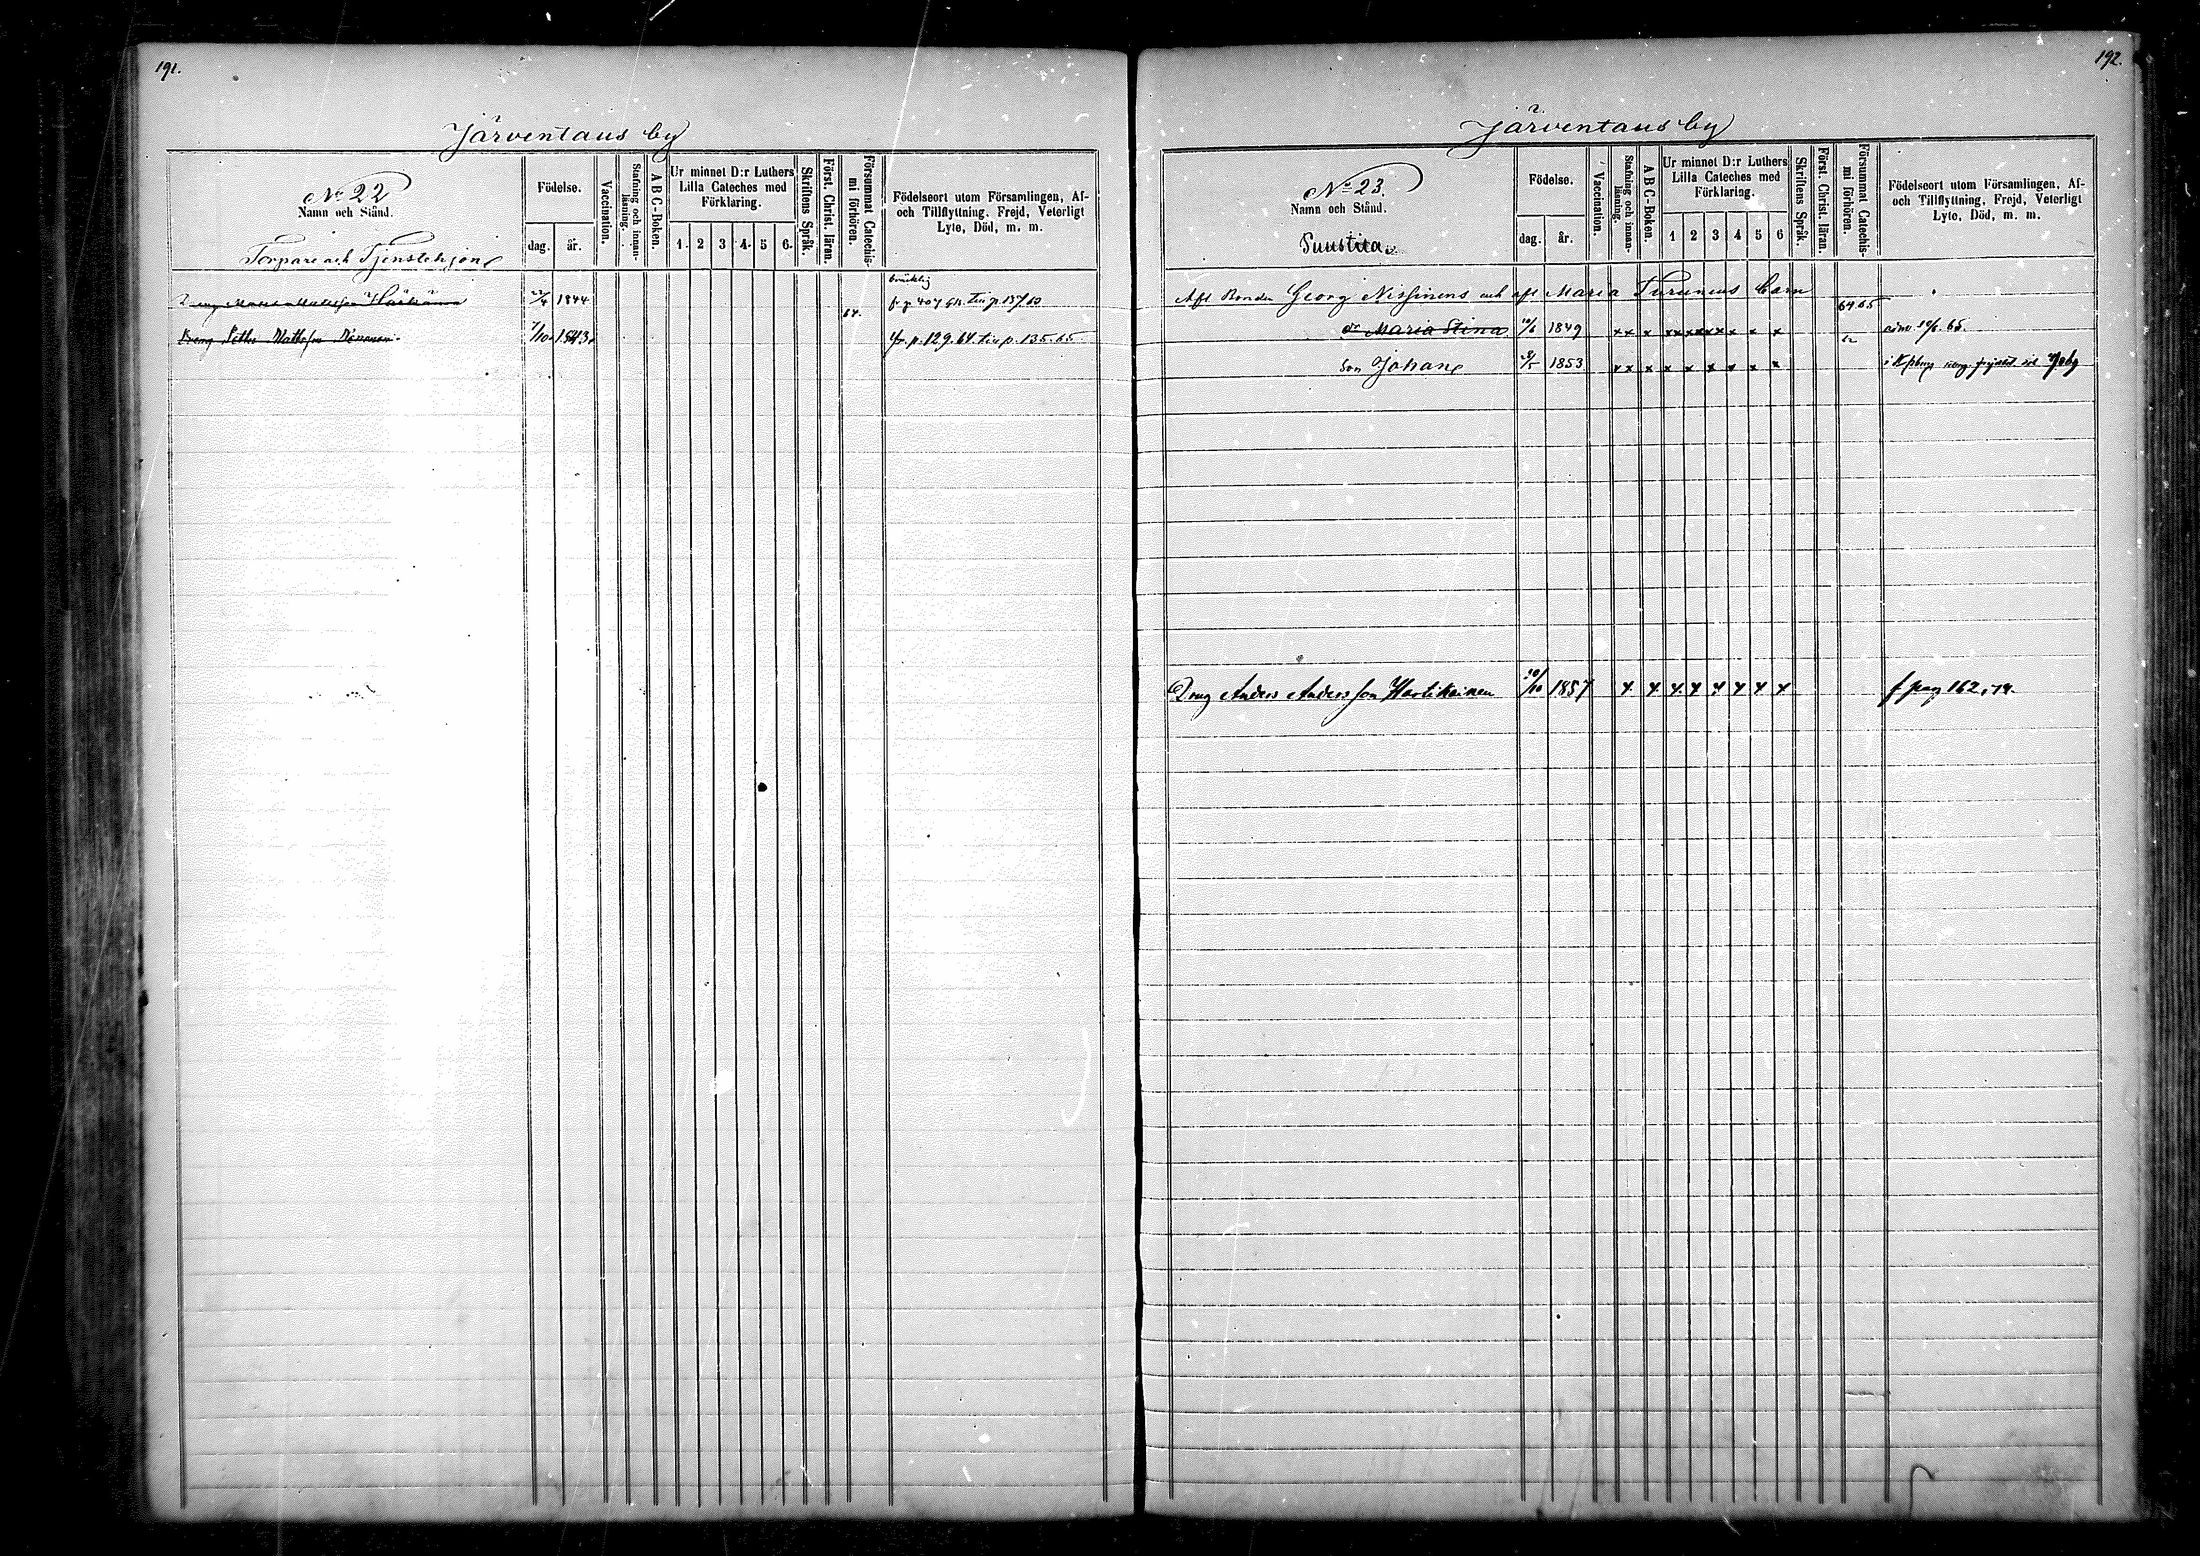 191.
Järventaus by
No 22
Namn och Stånd.
Torpare och Tjenstehjon
Födelse.
dag.
år.
Vaccination.
Stafning och innanläsning.
A B C-Boken.
Ur minnet D:r Luthers
Lilla Cateches med
Förklaring.
1. 2 3 4. 5 6.
Skriftens Språk.
Först. Christ. läran.
Försummat Catechismi förhören.
Födelseort utom Församlingen, Af-
och Tillflyttning, Frejd, Veterligt
Lyte, Död, m. m.
Dreng Matts Mattsson 1844
64.
Dreng Petter Mattsson 7/10 1843. fr. p. 129. 64. till p. 135. 65
192.
Järventaus by
No 23.
Namn och Stånd.
Födelse.
dag.
år.
Vaccination.
Stafning och innanläsning.
A B C-Boken.
Ur minnet D:r Luthers
Lilla Cateches med
Förklaring.
1 2 3 4 5 6
Skriftens Språk.
Först. Christ. läran.
Försummat Catechismi förhören.
Födelseort utom Församlingen, Af-
och Tillflyttning, Frejd, Veterligt
Lyte, Död, m. m.
Afl Bonden Georg Nissinens och afl Maria Turunens barn
64 65
dr Maria Stina 10/6 1849 x x x x x x x x x x
Son Johan 1853 x x x x x x x x x
Dreng Anders Andersson Hartikainen 10/10 1857 x x x x x x x x f pag 162, 74.